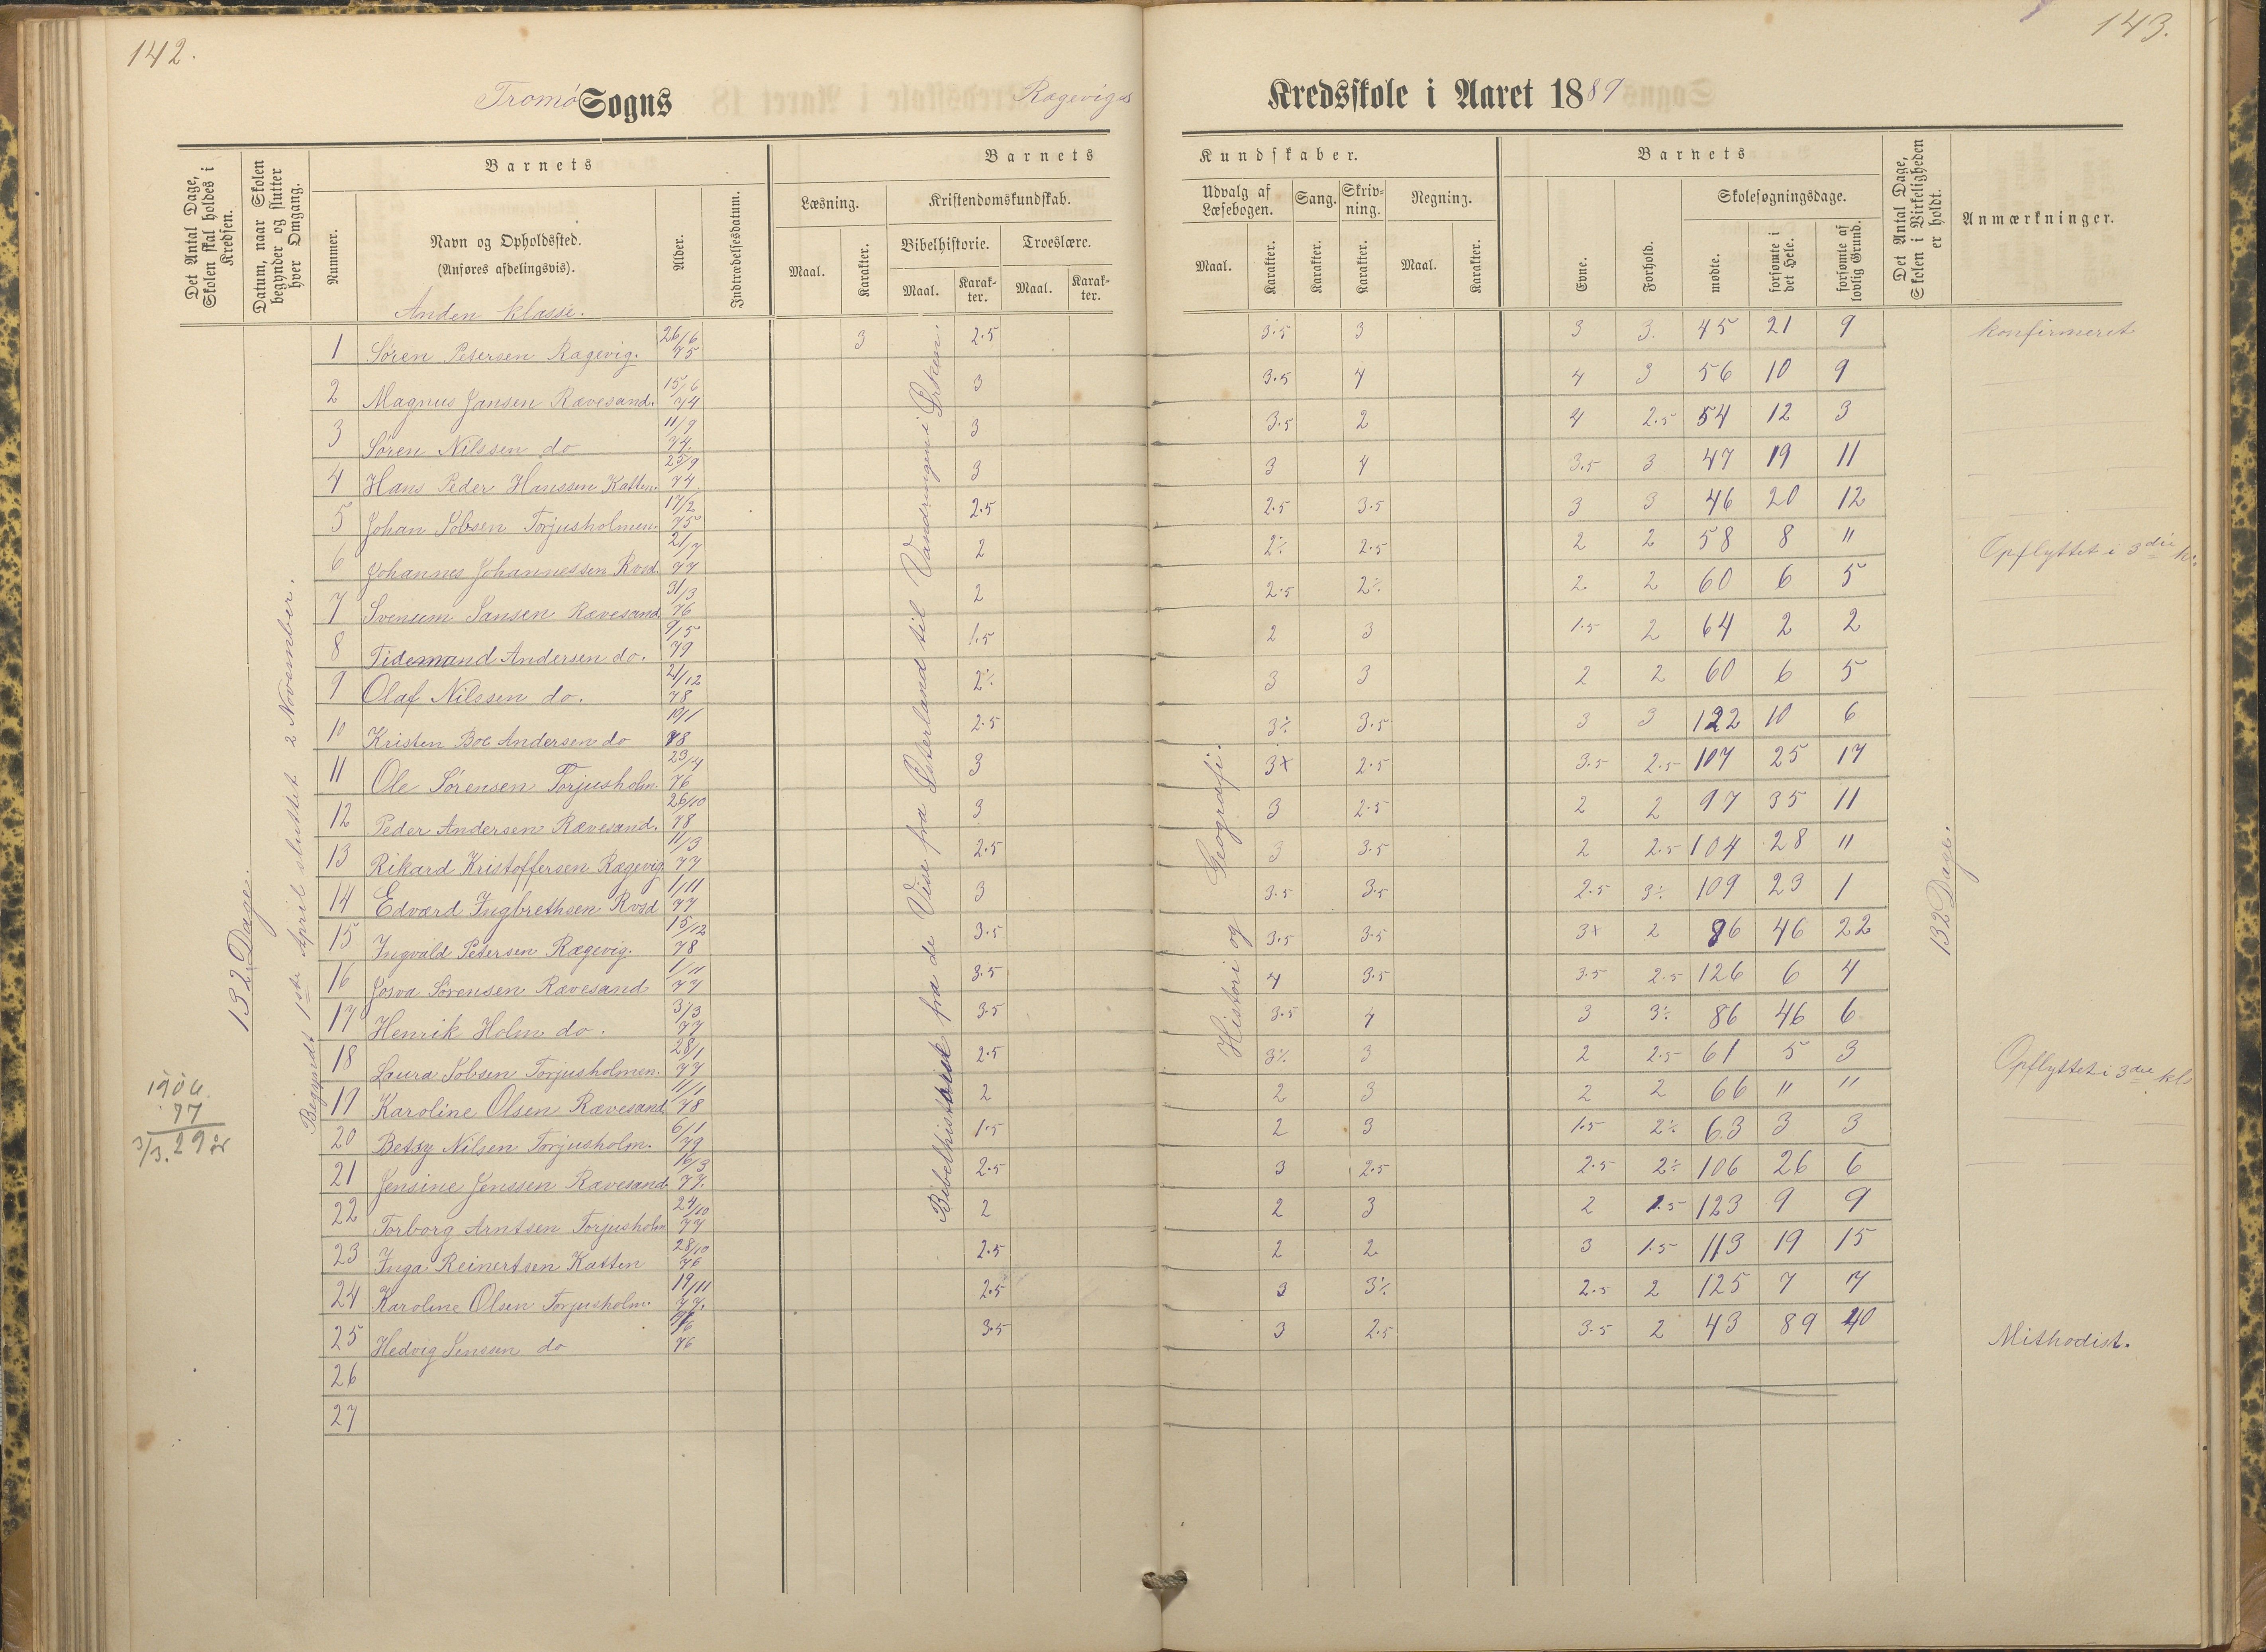 142.
143.
Tromø Sogns Rægevigs Kredsskole i Aaret 1889
Det Antal Dage, Skolen skal holdes i Kredsen.
Datum, naar Skolen begynder og slutter hver Omgang.
Nummer.
Barnets
Navn og Opholdssted.
(Anføres afdelingsvis).
Alder.
Indtrædelsesdatum.
Barnets Kundskaber.
Læsning.
Maal.
Karakter.
Kristendomskundskab.
Bibelhistorie.
Maal.
Karakter.
Troeslære.
Maal.
Karakter.
Udvalg af Læsebogen.
Maal.
Karakter.
Sang.
Karakter.
Skrivning.
Karakter.
Regning.
Maal.
Karakter.
Barnets
Evne.
Forhold.
Skolesøgningsdage.
mødte.
forsømte i det Hele.
forsømte af lovlig Grund.
Det Antal Dage, Skolen i Virkeligheden er holdt.
Anmærkninger.
Anden klasse.
132 Dage.
Begyndt 1ste April sluttet 2 November.
Bibelhistorie fra de Vise fra Østerland til Vandringen i Ørken.
Historie og Geografi.
132 Dage.
1 Søren Petersen Rægevig. 26/6 75 3 2.5 3.5 3 3 3. 45 21 9 konfirmeret
2 Magnus Jansen Rævesand. 15/6 74 3 3.5 4 4 3 56 10 9
3 Søren Nilssen do 11/9 74. 3 3.5 2 4 2.5 54 12 3
4 Hans Peder Hanssen Katten. 25/9 74 3 3 4 3.5 3 47 19 11
5 Johan Jobsen Torjusholmen. 17/2 75 2.5 2.5 3.5 3 3 46 20 12
6 Johannes Johannessen Rvsd 21/7 77 2 2÷ 2.5 2 2 58 8 " Opflyttet i 3die kl.
7 Svenum Jansen Rævesand. 31/3 76 2 2.5 2÷ 2 2 60 6 5
8 Tidemand Andersen do. 9/5 79 1.5 2 3 1.5 2 64 2 2
9 Olaf Nilssen do. 21/12 78 2÷ 3 3 2 2 60 6 5
10 Kristen Boe Andersen do 10/1 78 2.5 3÷ 3.5 3 3 122 10 6
11 Ole Sørensen Torjusholm. 23/4 76 3 3+ 2.5 3.5 2.5 107 25 17
12 Peder Andersen Rævesand. 26/10 78 3 3 2.5 2 2 97 35 11
13 Rikard Kristoffersen Rægevig 11/3 77 2.5 3 3.5 2 2.5 104 28 "
14 Edvard Ingbrethsen Rvsd 1/11 77 3 3.5 3.5 2.5 3÷ 109 23 1
15 Ingvald Petersen Rægevig. 15/12 78 3.5 3.5 3.5 3+ 2 86 46 22
16 Josva Sørensen Rævesand 1/11 77 3.5 4 3.5 3.5 2.5 126 6 4
17 Henrik Holm do. 3/3 77 3.5 3.5 4 3 3÷ 86 46 6
18 Laura Jobsen Torjusholmen. 28/1 77 2.5 3÷ 3 2 2.5 61 5 3 Opflyttet i 3die kls
19 Karoline Olsen Rævesand 11/1 78 2 2 3 2 2 66 " "
20 Betsy Nilsen Torjusholm. 6/1 79 1.5 2 3 1.5 2÷ 63 3 3
21 Jensine Jenssen Rævesand. 16/3 77. 2.5 3 2.5 2.5 2÷ 106 26 6
22 Torborg Arntsen Torjusholm 24/10 77 2 2 3 2 1.5 123 9 9
23 Inga Reinertsen Katten 28/10 76 2.5 2 2 3 1.5 113 19 15
24 Karoline Olsen Torjusholm. 19/11 77. 2.5 3 3÷ 2.5 2 125 7 7
25 Hedvig Jenssen do 76 3.5 3 2.5 3.5 2 43 89 40 Mithodist.
26
27
1906.
77
3/3. 29 år